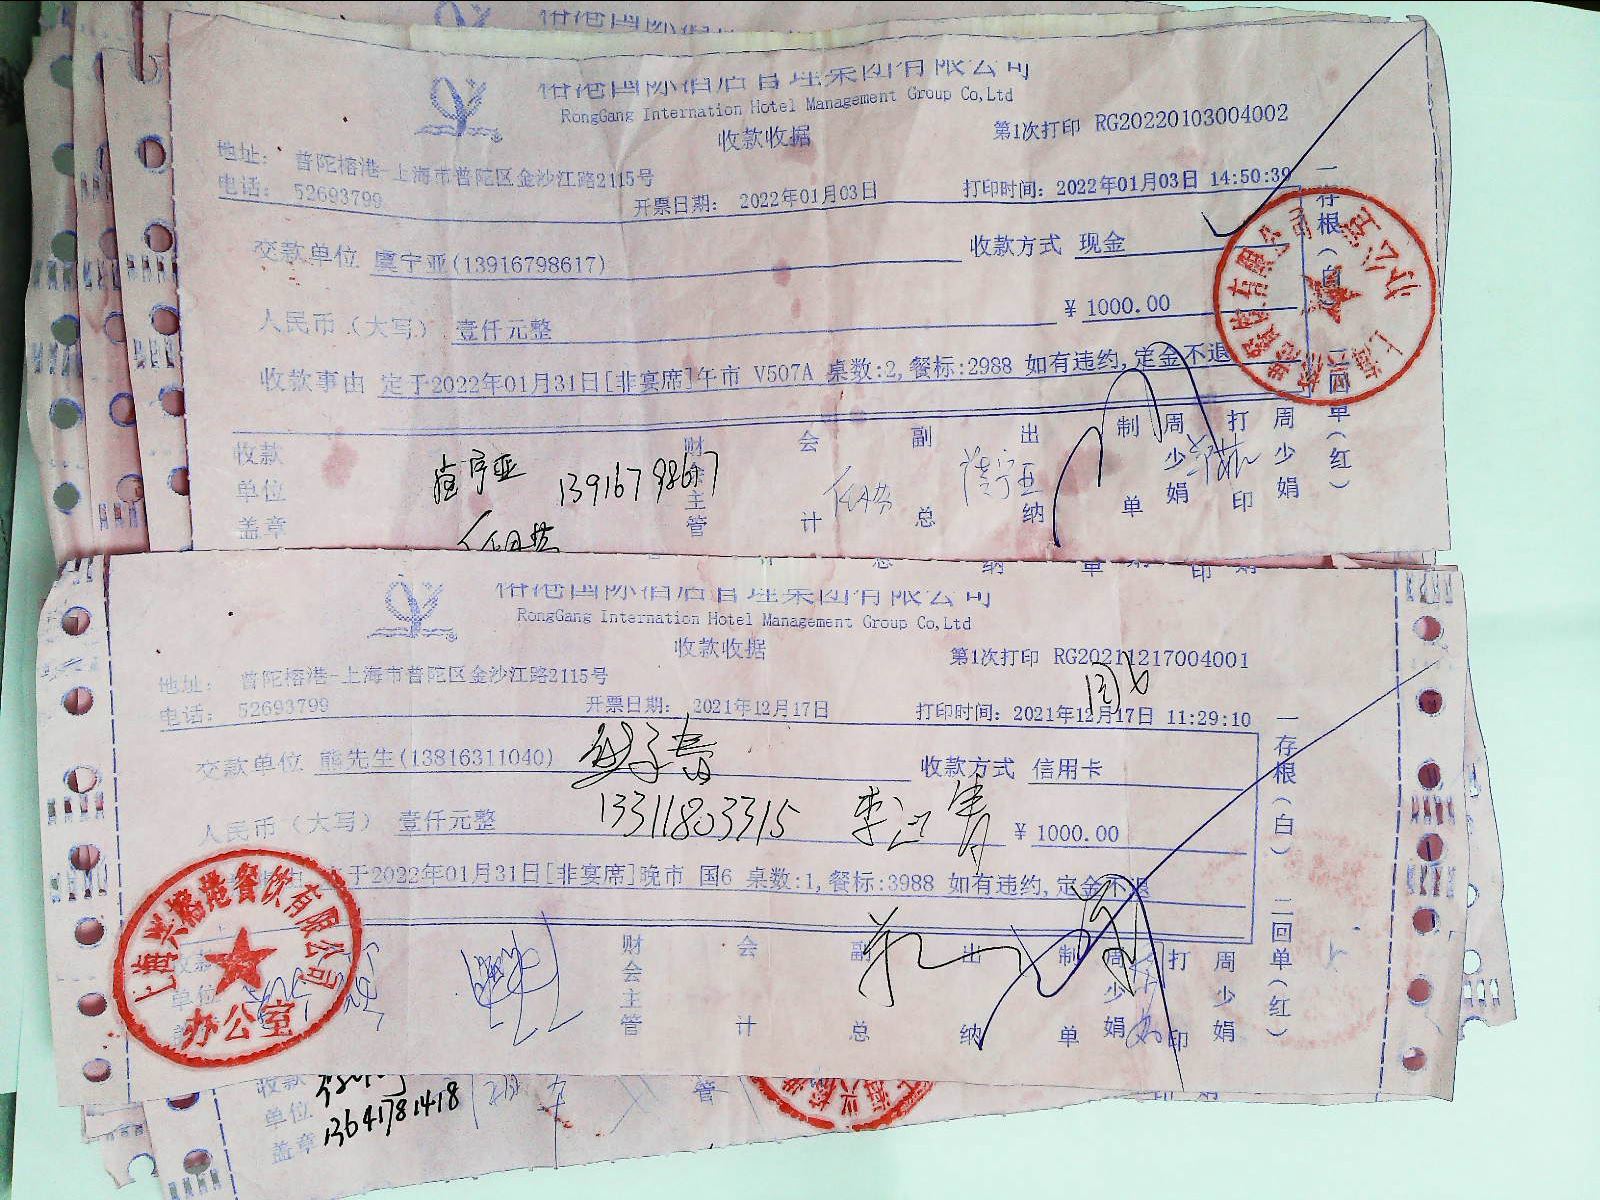 榕港国际酒店管理集团有限公司
RongGang Internation Hotel Management Group Co,Ltd
收款收据
第1次打印 RG20220103004002
地址： 普陀榕港-上海市普陀区金沙江路2115号
电话： 52693799
开票日期： 2022年01月03日
打印时间：2022年01月03日 14:50:39
交款单位 虞宁亚(13916798617)
收款方式 现金
人民币（大写） 壹仟元整
￥ 1000.00
收款事由 定于2022年01月31日[非宴席]午市 V507A 桌数:2,餐标:2988 如有违约,定金不退
一存根（白） 二回单（红）
办公室
收款单位盖章
13916798617
财会主管
会计
副总
出纳
制单
周少娟
打印
周少娟
榕港国际酒店管理集团有限公司
RongGang Internation Hotel Management Group Co,Ltd
收款收据
第1次打印 RG20211217004001
地址： 普陀榕港-上海市普陀区金沙江路2115号
电话： 52693799
开票日期： 2021年12月17日
打印时间：2021年12月17日 11:29:10
交款单位 熊先生(13816311040)
收款方式 信用卡
人民币（大写） 壹仟元整
13311803315
￥ 1000.00
于2022年01月31日[非宴席]晚市 国6 桌数:1,餐标:3988 如有违约,定金不退
一存根（白） 二回单（红）
上海兴榕港餐饮有限公司
办公室
财会主管
会计
副总
出纳
制单
周少娟
打印
周少娟
收款单位盖章
13641781418
管